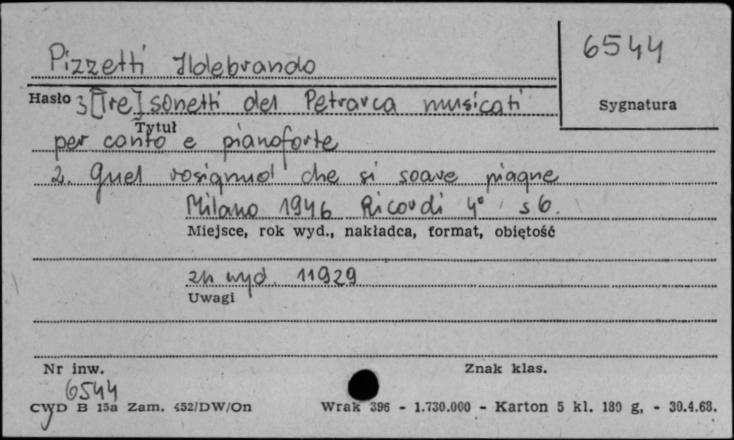 Pizzetti Ildebrando
6544
Hasło 3 [Tre] sonetti del Petrarca musicati
Sygnatura
Tytuł
per canto e pianoforte
2. Quel rosignuol che si soave piagne
Milano 1946 Ricordi 4° s 6.
Miejsce, rok wyd., nakładca, format, objętość
zn wyd. 11929
Uwagi
Nr inw.
Znak klas.
6544
CWD B 15a Zam. 452/DW/On
Wrak 396 - 1.730.000 - Karton 5 kl. 180 g, - 30.4.68.